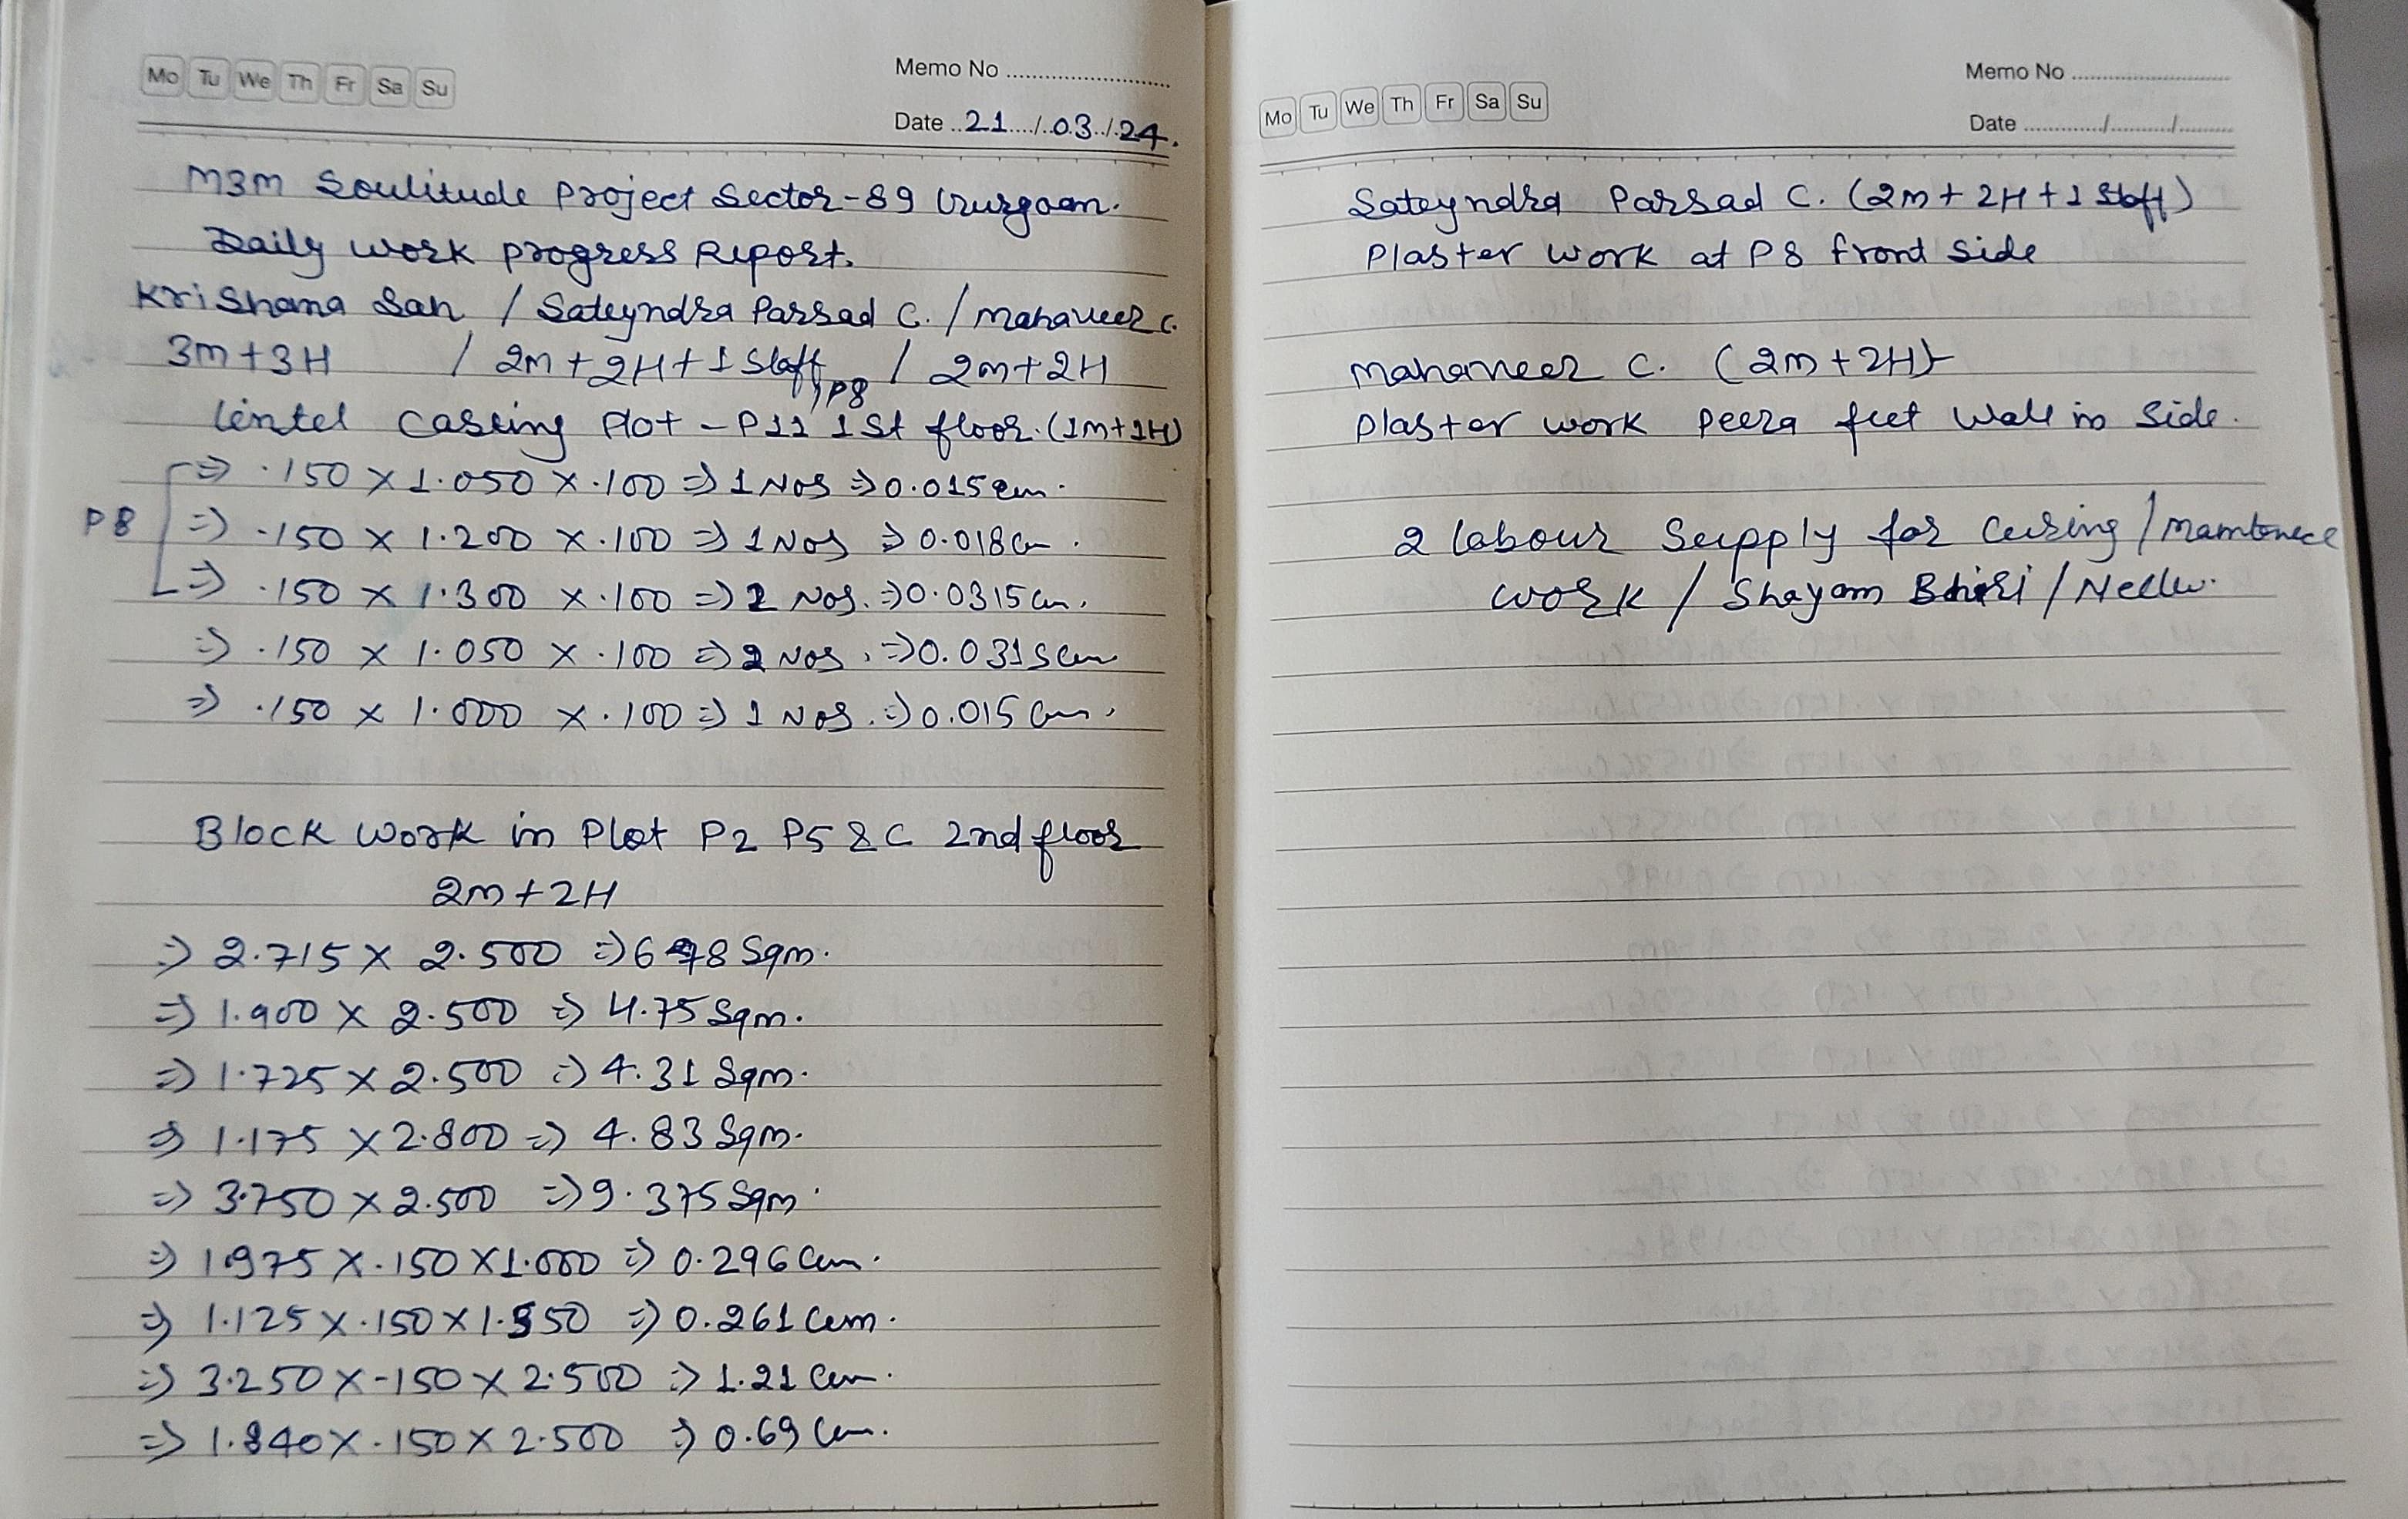 Mo Tu We Th Fr Sa Su
Memo No
Date 21/03/24.
M3M Soulitude Project Sector-89 Gurgoam.
Daily work progress Report.
Krishana Sah / Sateyndra Parsad C. / Mahaveer C.
3m+3H / 2m+2H+1 Staff / 2m+2H
,P8
lintel casting Plot -P11 1st floor. (1m+1H)
P8
⇒ .150 x 1.050 x .100 ⇒ 1 Nos ⇒ 0.015 cum.
⇒ .150 x 1.200 x .100 ⇒ 1 Nos ⇒ 0.018 cum.
⇒ .150 x 1.300 x .100 ⇒ 2 Nos. ⇒ 0.0315 cum.
⇒ .150 x 1.050 x .100 ⇒ 2 Nos. ⇒ 0.0315 cum
⇒ .150 x 1.000 x .100 ⇒ 1 Nos. ⇒ 0.015 cum.
Block work in Plot P2 P5 & C 2nd floor
2m+2H
⇒ 2.715 x 2.500 ⇒ 678 Sqm.
⇒ 1.900 x 2.500 ⇒ 4.75 Sqm.
⇒ 1.725 x 2.500 ⇒ 4.31 Sqm.
⇒ 1.175 x 2.800 ⇒ 4.83 Sqm.
⇒ 3.750 x 2.500 ⇒ 9.375 Sqm.
⇒ 1.975 x .150 x 1.000 ⇒ 0.296 Cum.
⇒ 1.125 x .150 x 1.550 ⇒ 0.261 Cum.
⇒ 3.250 x .150 x 2.500 ⇒ 1.21 Cum.
⇒ 1.840 x .150 x 2.500 ⇒ 0.69 Cum.
Mo Tu We Th Fr Sa Su
Memo No
Date
Sateyndra Parsad C. (2m+2H+1 Staff)
Plaster work at P8 front side
Mahaveer C. (2m+2H)
Plaster work Peera feet wall in side.
2 labour Supply for Curing / Maintenece
work / Shayam Bhiri / Neelu.